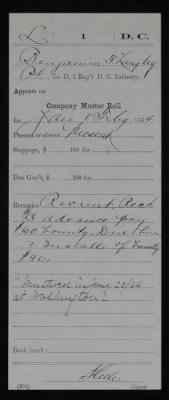 L | 1 | D. C.
Benjamin F. Langley
Pvt., Co. D, 1 Reg't D. C. Infantry.
Appears on
Company Muster Roll
for Jan & Feby, 1864.
Present or absent Present
Stoppage, $ 100 for
Due Gov't, $ 100 for
Remarks: Recruit Recd
$13 advance pay
$60 bounty. Due him
2 Installs of bounty
$40.
"Mustered in Jany 23/64
at Washington"
Book mark:
(358) Copyist.